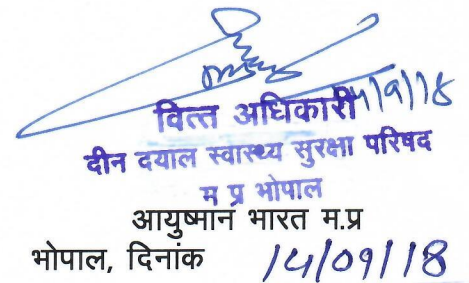 14/9/18
वित्त अधिकारी
दीन दयाल स्वास्थ्य सुरक्षा परिषद
म प्र भोपाल
आयुष्मान भारत म.प्र
भोपाल, दिनांक 14/09/18